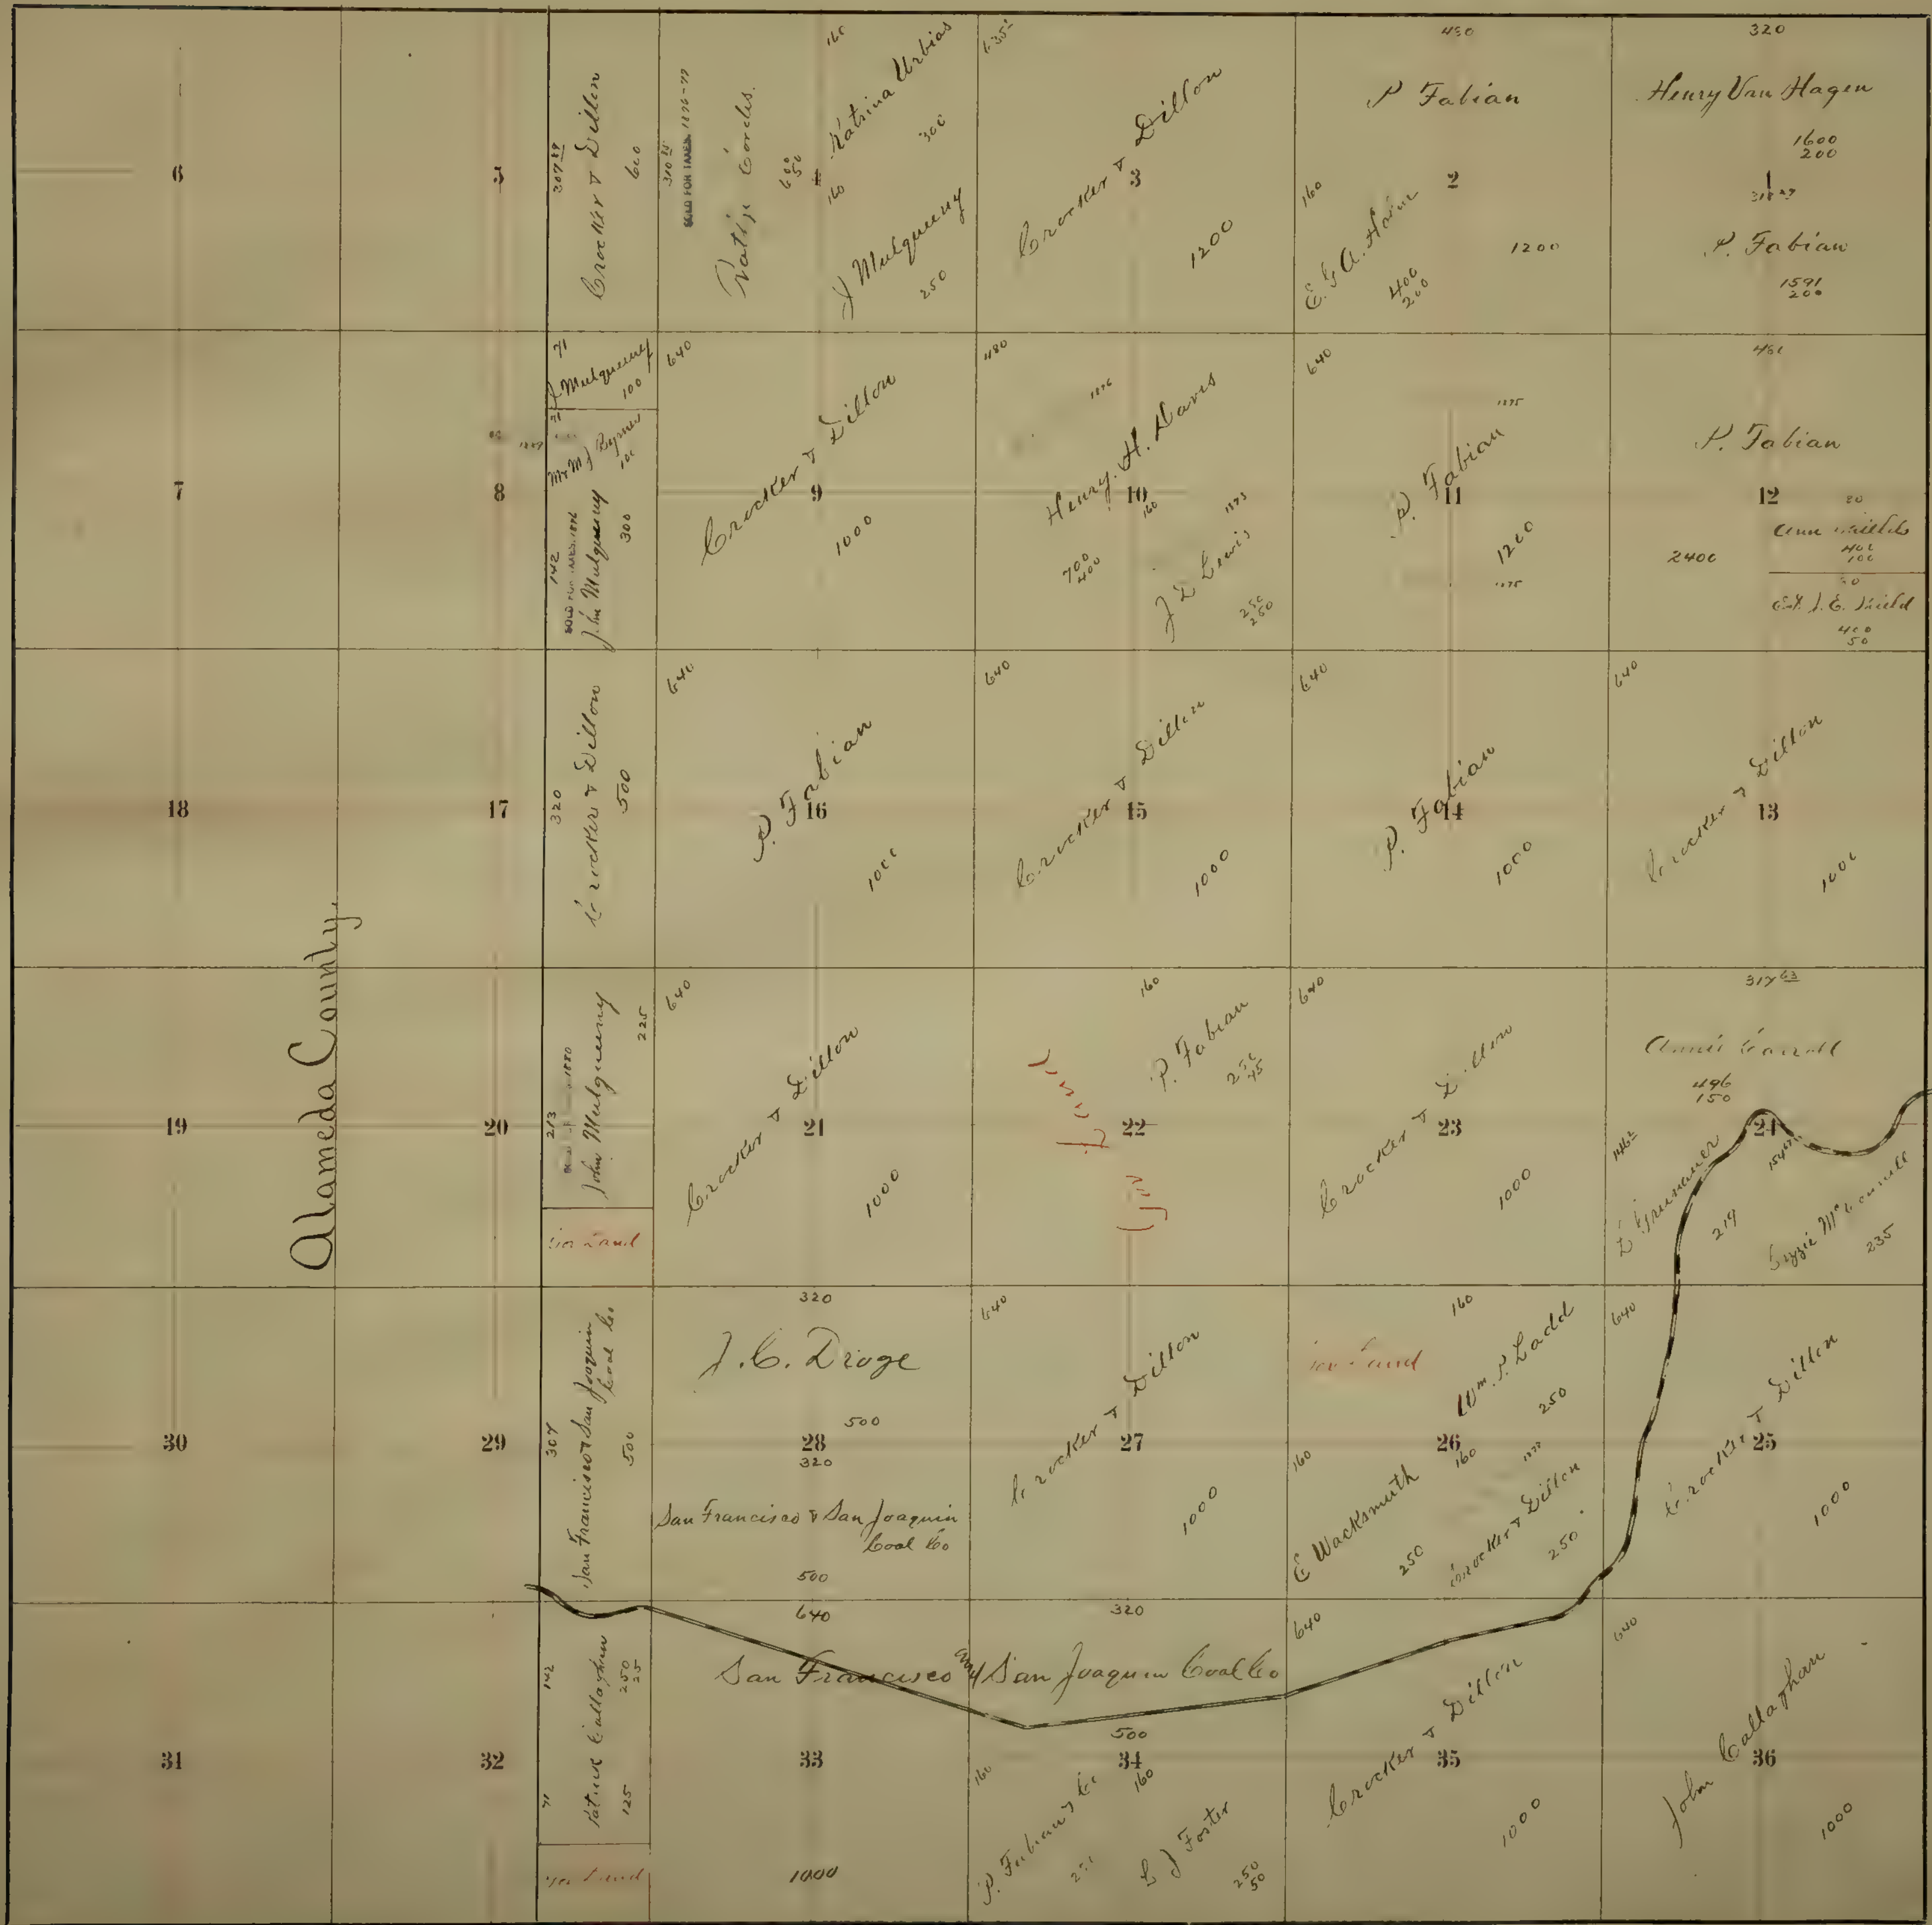 Alameda County.
6
5
307 89
Crocker & Dillon
600
310 25
SOLD FOR TAXES 1876-77
600
50
160
Katrina Urbias
300
160
J Mulqueeny
250
Crocker & Dillon
3
1200
480
P Fabian
2
160
E. G. A.
400
200
1200
320
Henry Van Hagen
1600
200
1
P. Fabian
1591
200
7
8
71
J Mulqueeny
100
71
142
John Mulqueeny
300
640
Crocker & Dillon
9
1000
480
1876
Henry. H. Davis
10
160
700
400
J L Lewis
250
250
640
1875
P. Fabian
11
1200
1875
480
P. Fabian
12
2400
80
Ann
400
100
400
50
18
17
320
Crocker & Dillon
500
640
P Fabian
16
1000
640
Crocker & Dillon
15
1000
640
P. Fabian
14
1000
640
Crocker & Dillon
13
1000
19
20
213
1880
John Mulqueeny
225
Gov Land
640
Crocker & Dillon
21
1000
160
P. Fabian
22
Gov Land
640
Crocker & Dillon
23
1000
317 63
Annie Carroll
496
150
24
L Grunauer
219
235
30
29
307
San Francisco & San Joaquin
Coal Co
500
320
J. C. Droge
500
28
320
San Francisco & San Joaquin
Coal Co
500
640
Crocker & Dillon
27
1000
Gov Land
160
Wm. P. Ladd
250
26
160
E Wacksmuth
250
160
Crocker & Dillon
250
640
Crocker & Dillon
25
1000
31
32
142
Patrick Callaghan
250
25
71
125
Gov Land
640
San Francisco and San Joaquin Coal Co
33
1000
320
500
34
160
P. Fabian & Co
160
L J Foster
250
50
640
Crocker & Dillon
35
1000
640
John Callaghan
36
1000